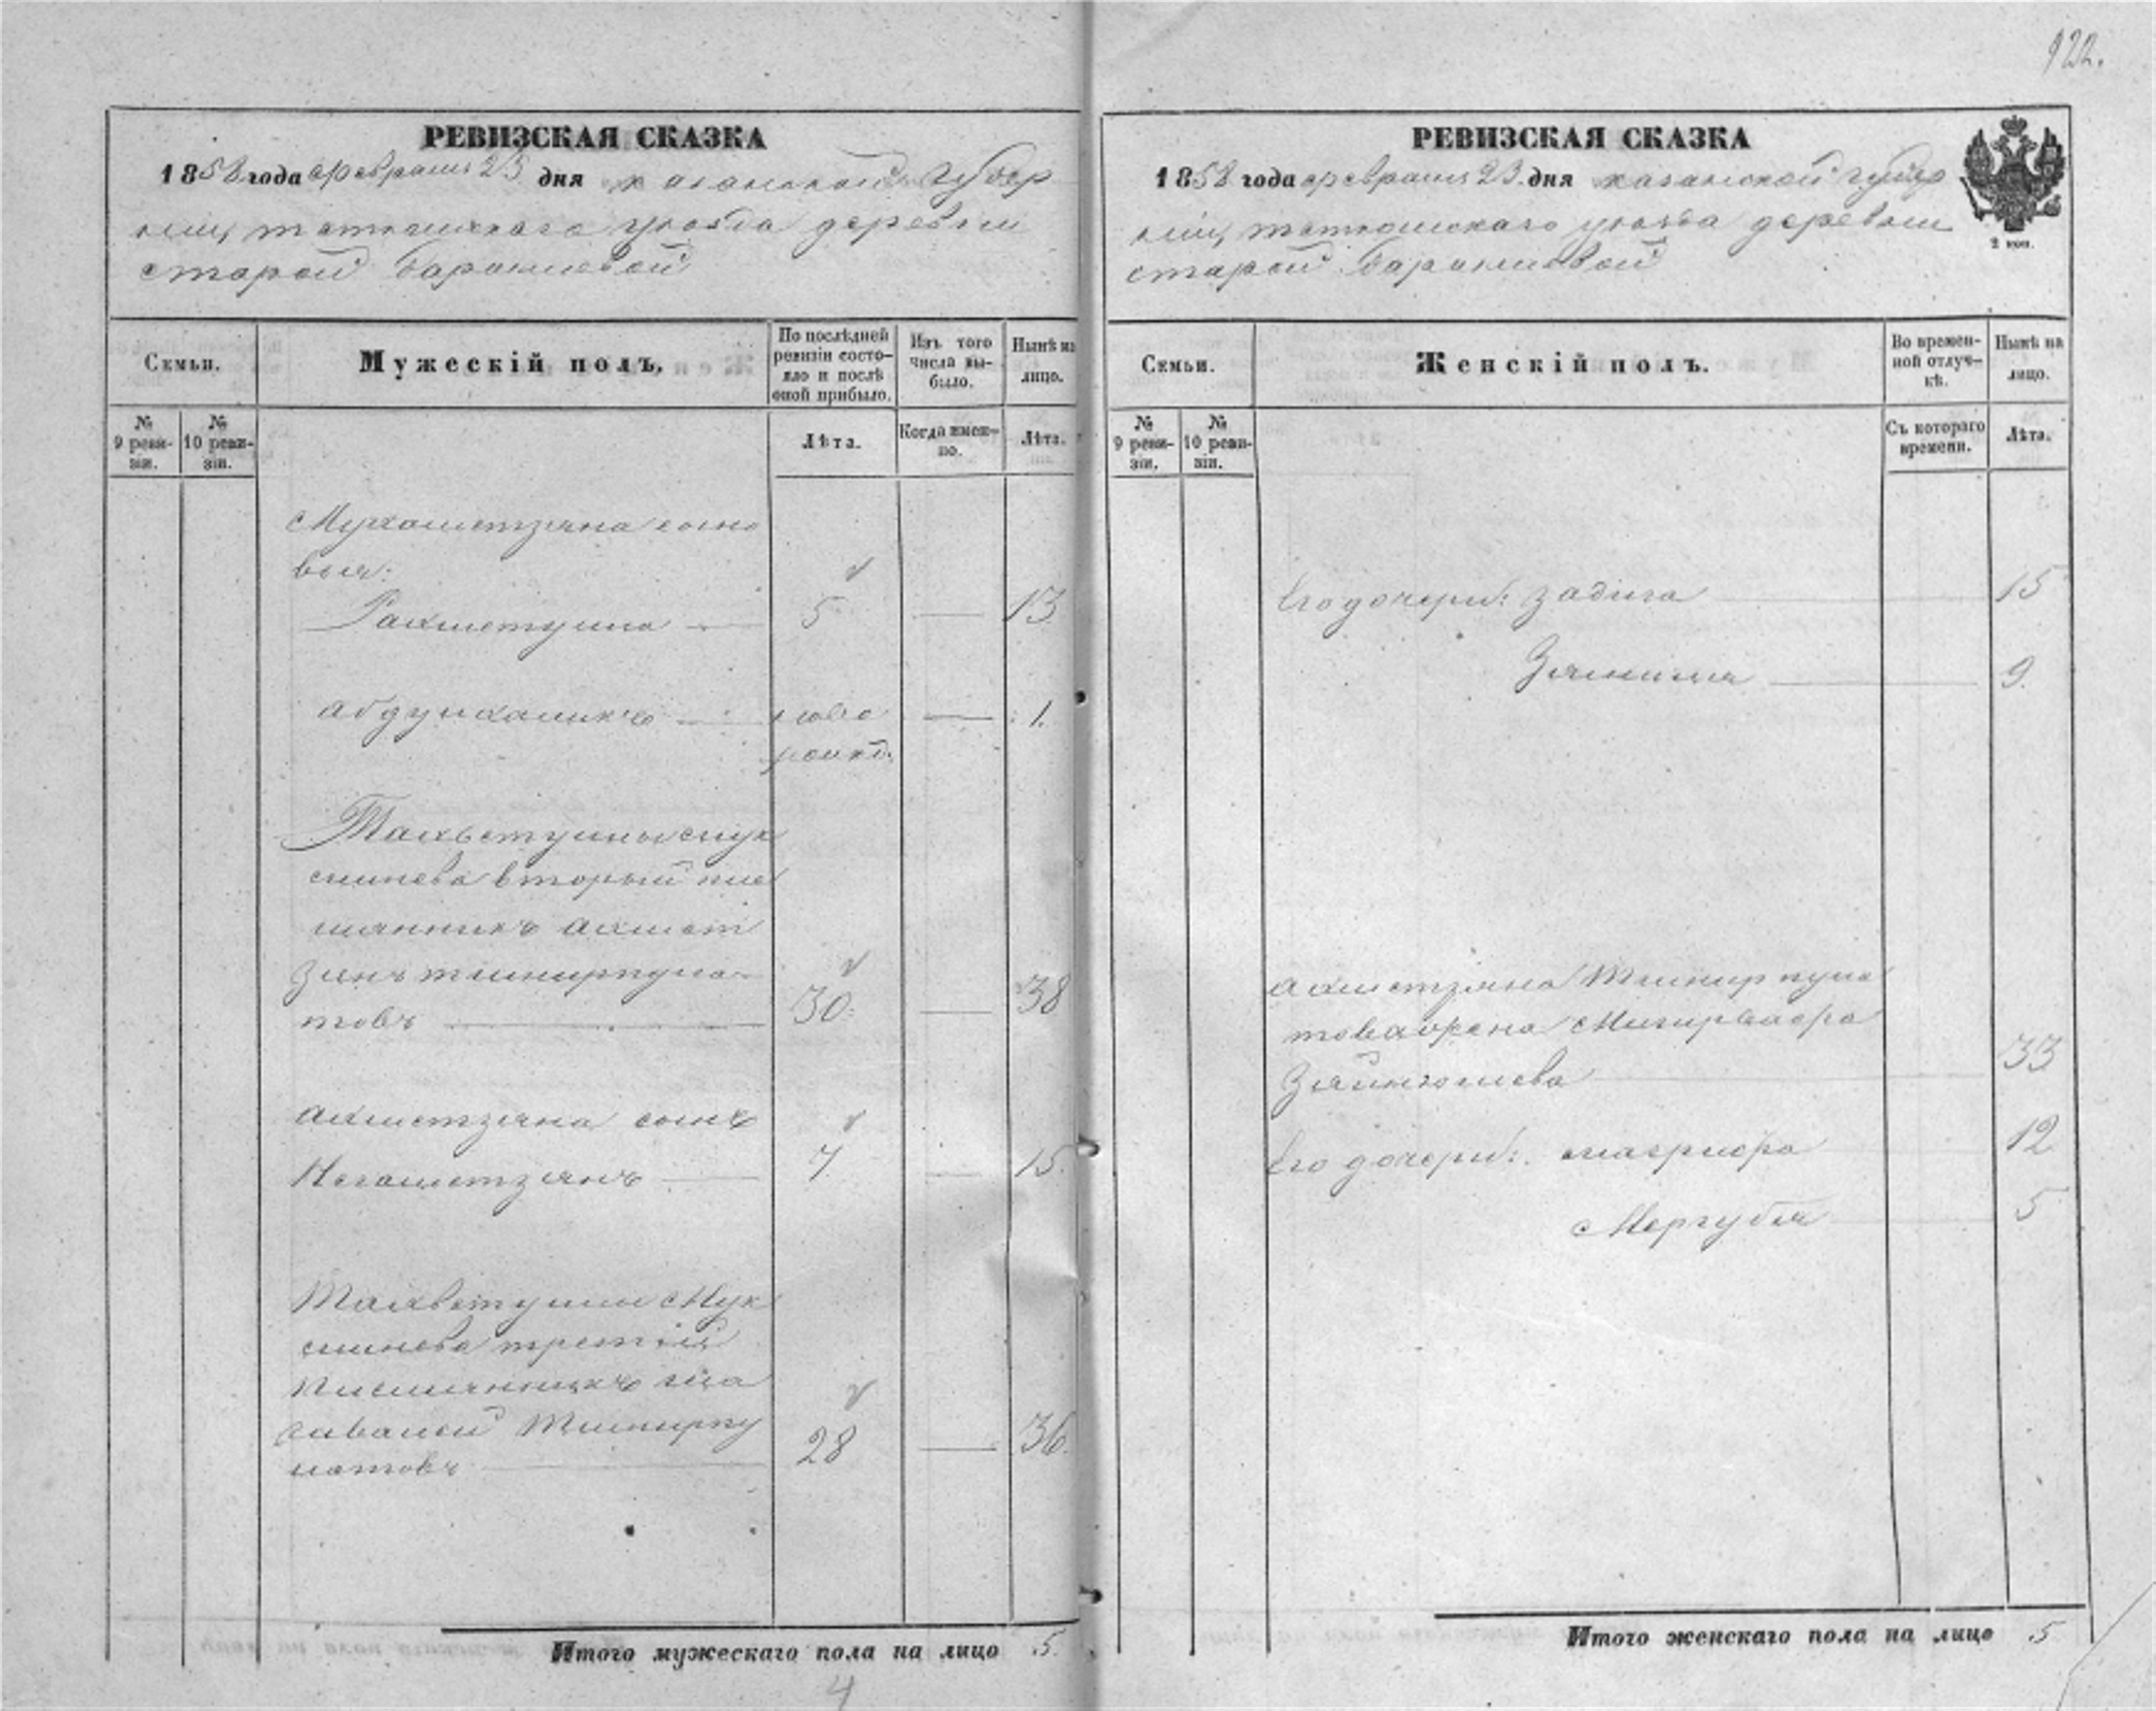 922.
РЕВИЗСКАЯ СКАЗКА
1858 года февраля 23 дня казанской губер
ніи, тетюшскаго уѣзда деревни
старой Барышевой
Семьи.
Мужескій полъ.
По послѣдней ревизіи состояло и послѣ оной прибыло.
Изъ того числа выбыло.
Нынѣ на лицо.
№ 9 ревизіи.
№ 10 ревизіи.
Лѣта.
Когда именно.
Лѣта.
Мухаметзяна сыно
вья:
Рахметулла 5 13
абдулхаликъ ново 1.
рожд.
Мук
синева второй пле
мянникъ ахмет
зянъ темирпула
товъ 30. 38
ахметзяна сынъ
Негаметзянъ 7 15.
Мук
синева третій
племянникъ
Темирпу
латовъ 28 36.
Итого мужескаго пола на лицо 5.
4
РЕВИЗСКАЯ СКАЗКА
1858 года февраля 23 дня казанской губер
ніи, тетюшскаго уѣзда деревни
старой Барышевой
2 коп.
Семьи.
Женскій полъ.
Во временной отлучкѣ.
Нынѣ на лицо.
№ 9 ревизіи.
№ 10 ревизіи.
Съ котораго времени.
Лѣта.
Его дочери: 15
9.
ахметзяна Темирпула
това жена
33
Его дочери: 12
Мергубя 5
Итого женскаго пола на лицо 5